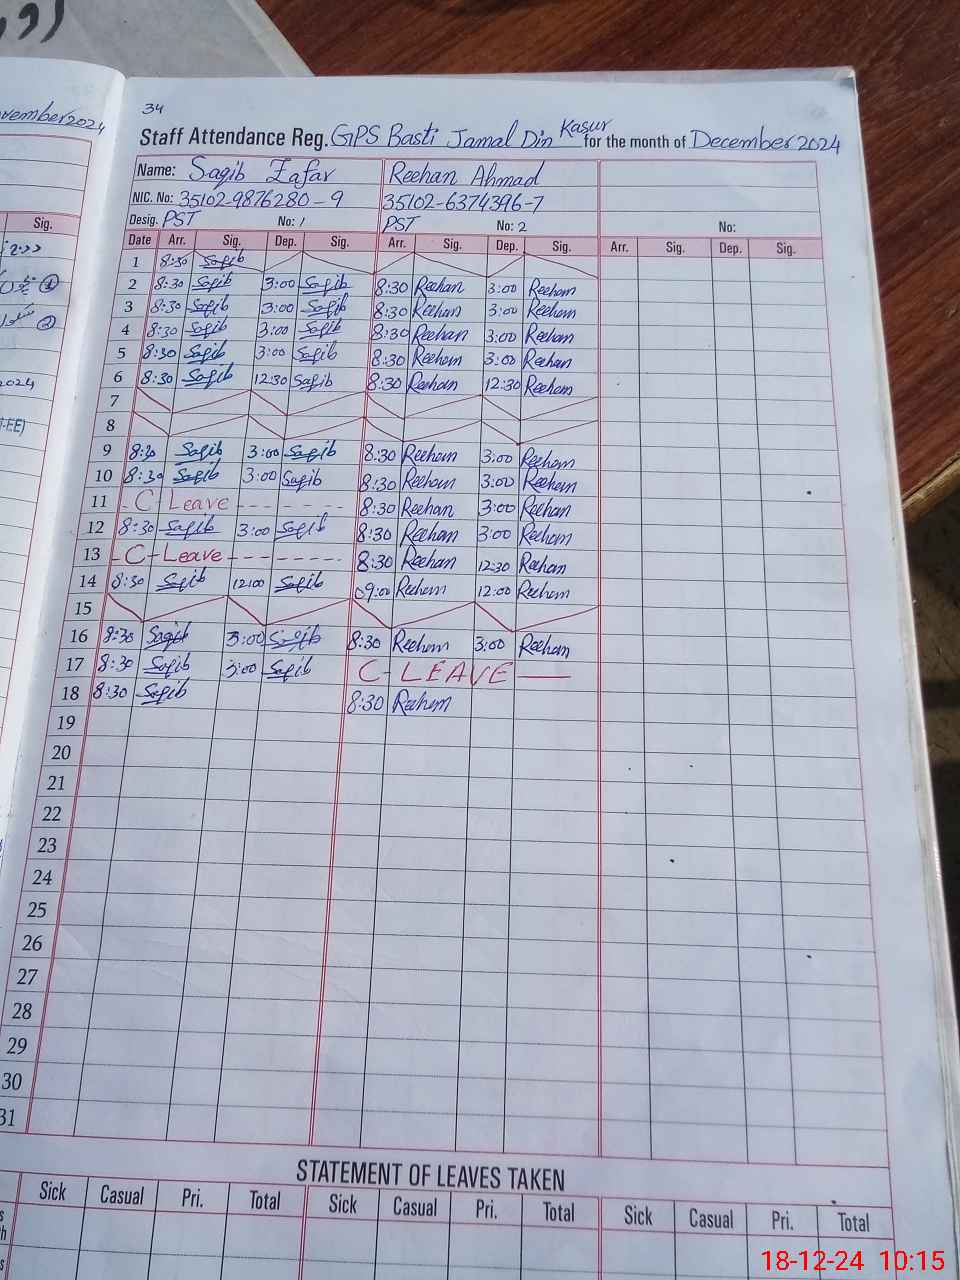 vember 2024
34
Staff Attendance Reg. GPS Basti Jamal Din Kasur for the month of December 2024
Name: Saqib Zafar Reehan Ahmad
NIC. No: 35102-9876280-9 35102-6374396-7
Desig. PST No: 1 PST No: 2 No:
Sig. Date Arr. Sig. Dep. Sig. Arr. Sig. Dep. Sig. Arr. Sig. Dep. Sig.
1 8:30 Saqib
2 8:30 Saqib 3:00 Saqib 8:30 Reehan 3:00 Reehan
3 8:30 Saqib 3:00 Saqib 8:30 Reehan 3:00 Reehan
4 8:30 Saqib 3:00 Saqib 8:30 Reehan 3:00 Reehan
5 8:30 Saqib 3:00 Saqib 8:30 Reehan 3:00 Reehan
2024 6 8:30 Saqib 12:30 Saqib 8:30 Reehan 12:30 Reehan
7
8
9 8:30 Saqib 3:00 Saqib 8:30 Reehan 3:00 Reehan
10 8:30 Saqib 3:00 Saqib 8:30 Reehan 3:00 Reehan
11 C-Leave 8:30 Reehan 3:00 Reehan
12 8:30 Saqib 3:00 Saqib 8:30 Reehan 3:00 Reehan
13 C-Leave 8:30 Reehan 12:30 Reehan
14 8:30 Saqib 12:00 Saqib 09:00 Reehan 12:00 Reehan
15
16 8:30 Saqib 3:00 Saqib 8:30 Reehan 3:00 Reehan
17 8:30 Saqib 3:00 Saqib C-LEAVE
18 8:30 Saqib 8:30 Reehan
19
20
21
22
23
24
25
26
27
28
29
30
31
STATEMENT OF LEAVES TAKEN
Sick Casual Pri. Total Sick Casual Pri. Total Sick Casual Pri. Total
18-12-24 10:15